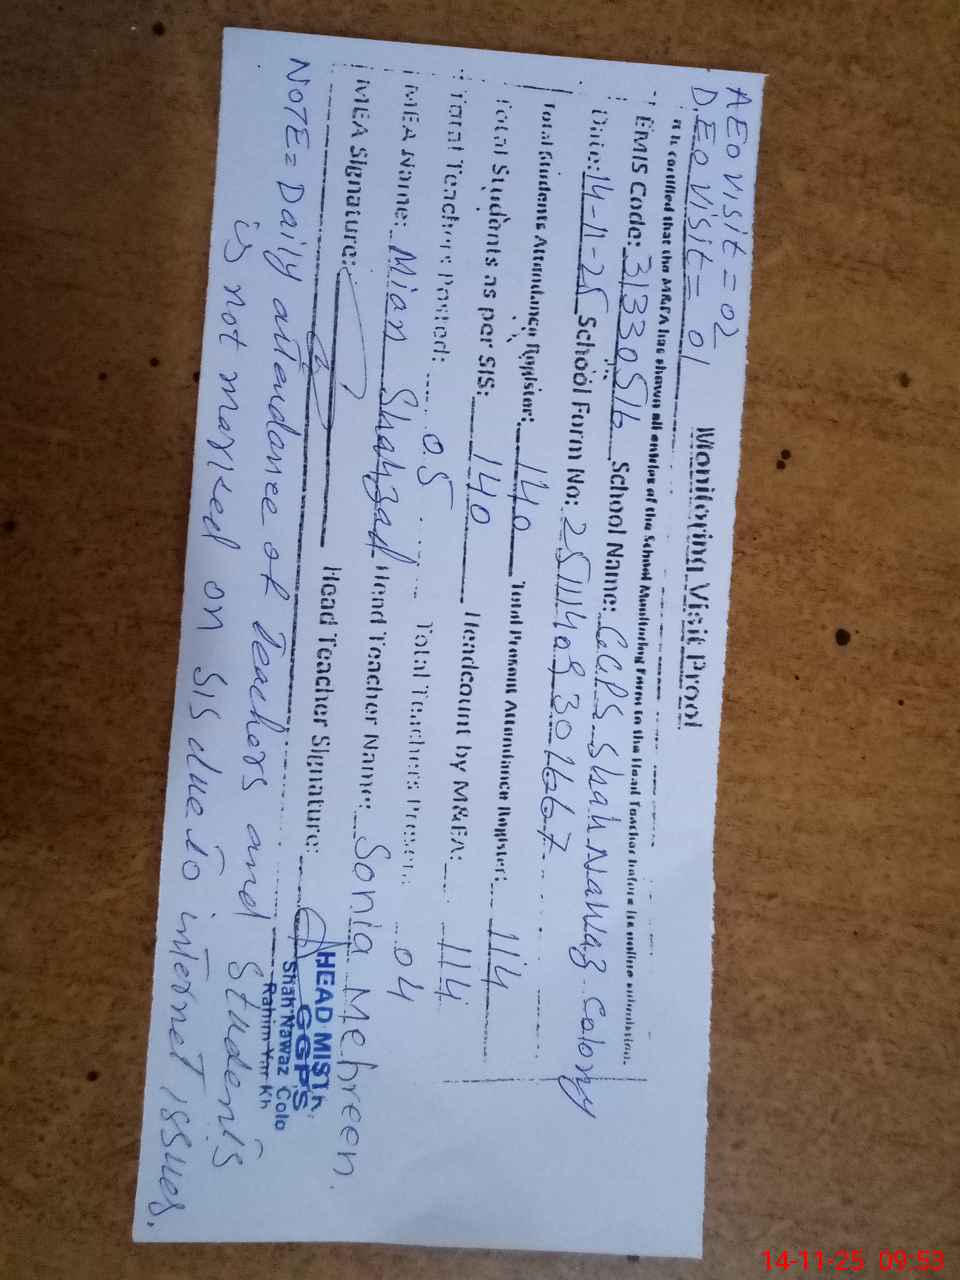 AEO visit = 02
DEO visit = 01
Monitoring Visit Proof
It is certified that the M&EA has shown all entries of the School Monitoring Form to the Head Teacher before its online submission.
EMIS Code: 31330516 School Name: GGPS Shah Nawaz Colony
Date: 14-11-25 School Form No:
Total Students Attendance Register: 140 Total Present Attendance Register: 114
Total Students as per SIS: 140 Headcount by M&EA: 114
Total Teachers Posted: 05 Total Teachers Present: 04
MEA Name: Mian Shahzad Head Teacher Name: Sonia Mehreen.
MEA Signature: Head Teacher Signature:
HEAD MISTR
GGPS
Shah Nawaz Colo
Rahim Yar Kh
NOTE= Daily attendance of Teachers and Students
is not marked on SIS due to internet issues.
14-11-25 09:53